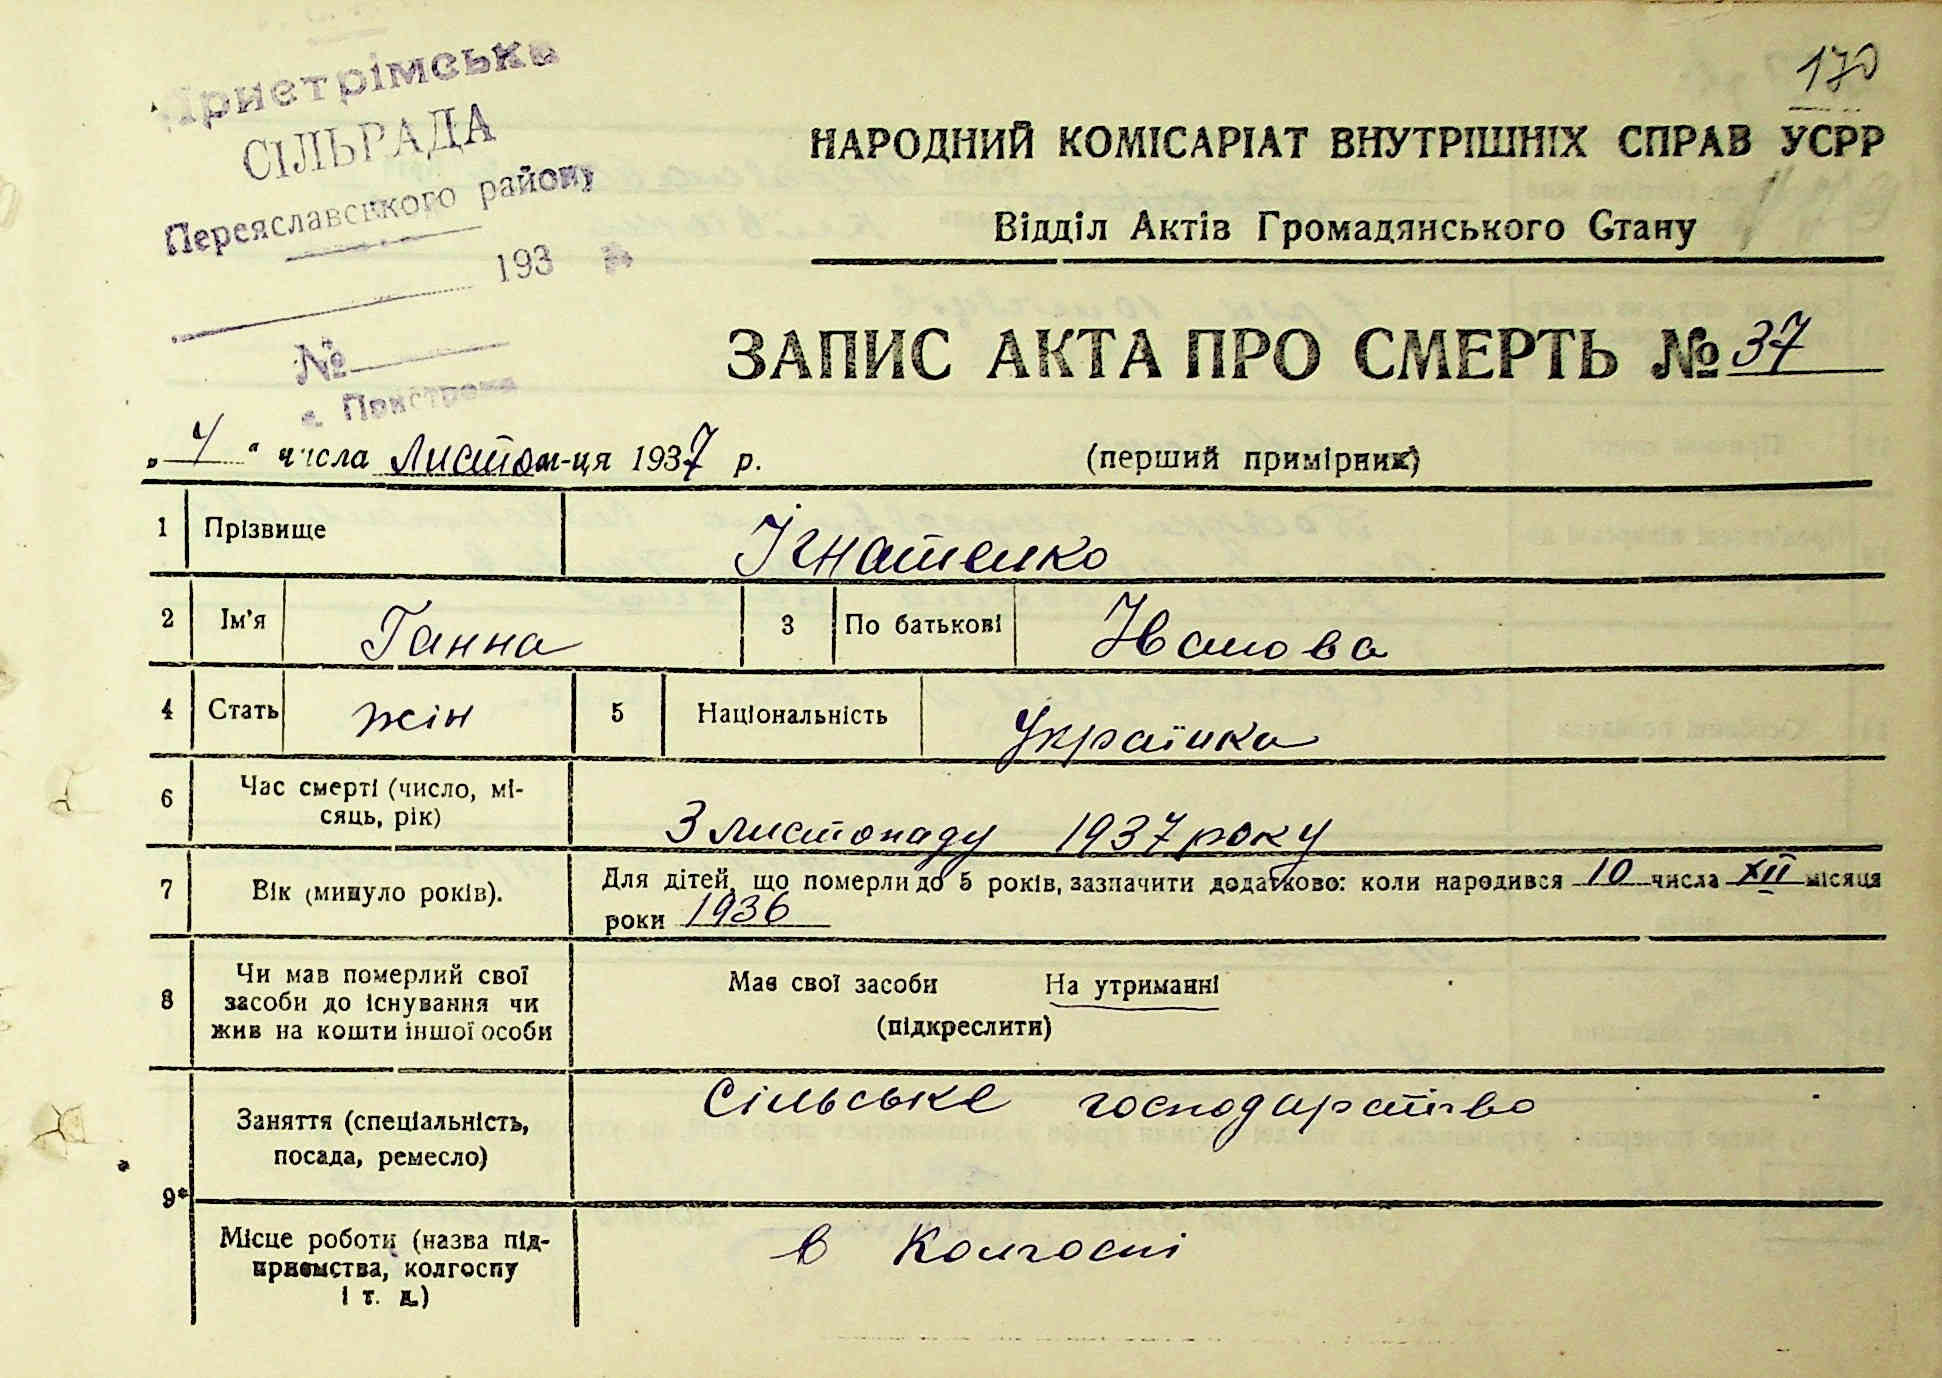 Пристрімська
СІЛЬРАДА
Переяславського району
193
№
с. Пристроми
170
НАРОДНИЙ КОМІСАРІАТ ВНУТРІШНІХ СПРАВ УСРР
Відділ Актів Громадянського Стану
ЗАПИС АКТА ПРО СМЕРТЬ № 37
„ 4 “ числа листо м-ця 1937 р.
(перший примірник)
1 Прізвище Ігнатенко
2 Ім'я Ганна 3 По батькові Іванова
4 Стать жін 5 Національність Українка
6 Час смерті (число, мі-
сяць, рік) 3 листопаду 1937 року
7 Вік (минуло років). Для дітей, що померли до 5 років, зазначити додатково: коли народився 10 числа XII місяця
роки 1936
8 Чи мав померлий свої
засоби до існування чи
жив на кошти іншої особи
Має свої засоби На утриманні
(підкреслити)
9* Заняття (спеціальність,
посада, ремесло) Сільське господарство
Місце роботи (назва під-
приємства, колгоспу
і т. д.) в Колгоспі